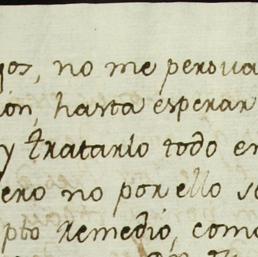 jos, no me persua
ion, hasta esperar
y tratarlo todo en
ero no por ello se
pto remedio, como